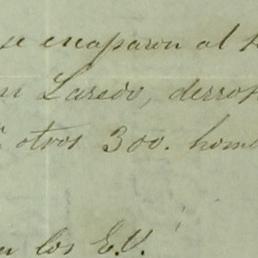 se escaparon al
Laredo, derro
otros 300. hom
en los E.U.